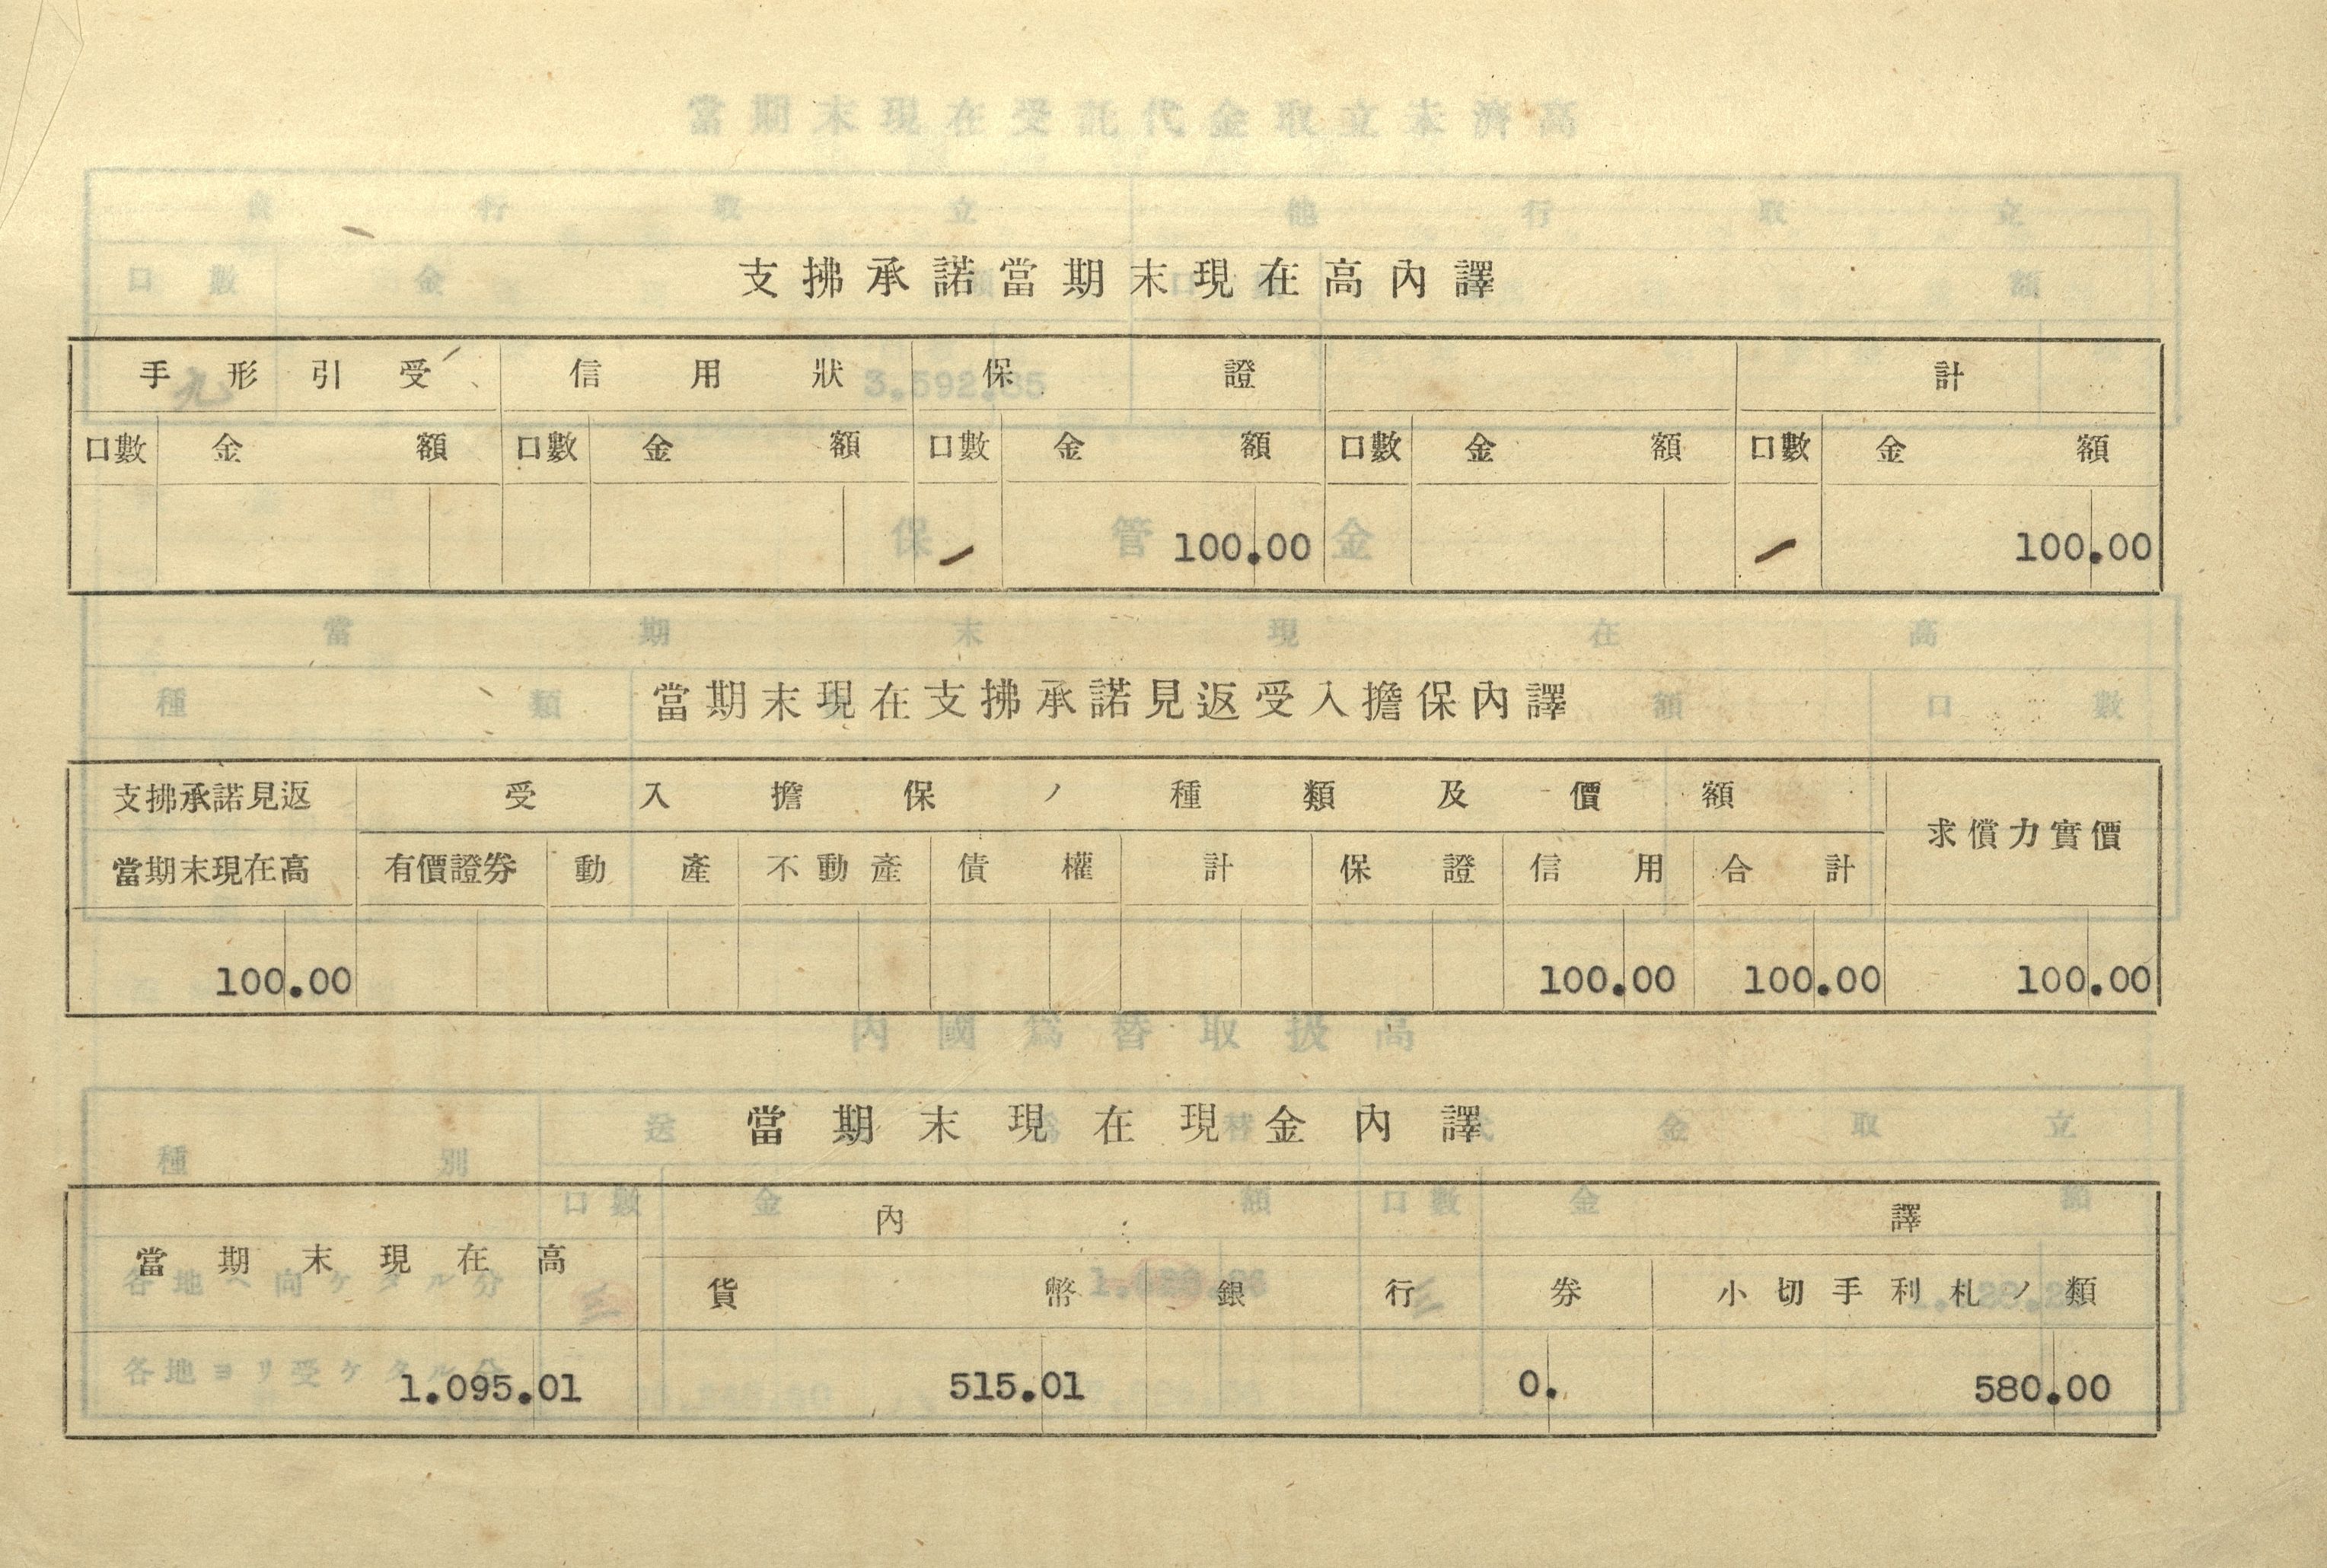 支拂承諾當期末現在高內譯
手形引受 信用狀 保證 計
口數 金額 口數 金額 口數 金額 口數 金額 口數 金額
一 100.00 一 100.00
當期末現在支拂承諾見返受入擔保內譯
支拂承諾見返 受入擔保ノ種類及價額 求償力實價
當期末現在高 有價證券 動產 不動產 債權 計 保證 信用 合計
100.00 100.00 100.00 100.00
當期末現在現金內譯
當期末現在高 內譯
貨幣 銀行券 小切手利札ノ類
1.095.01 515.01 0. 580.00